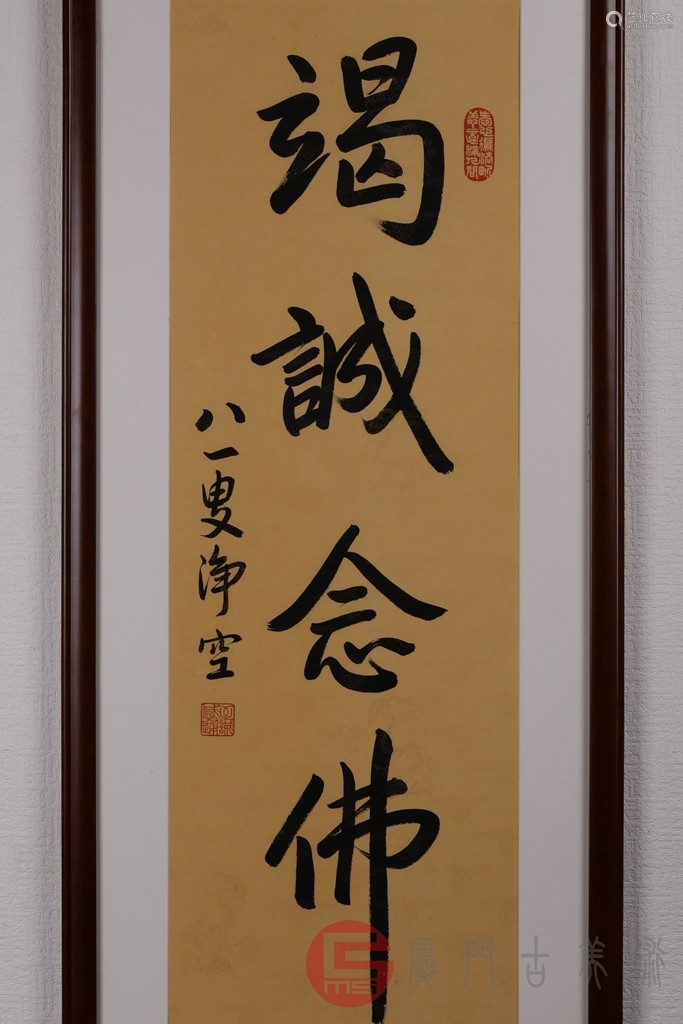 竭誠念佛
八一叟淨空
廈門古美術